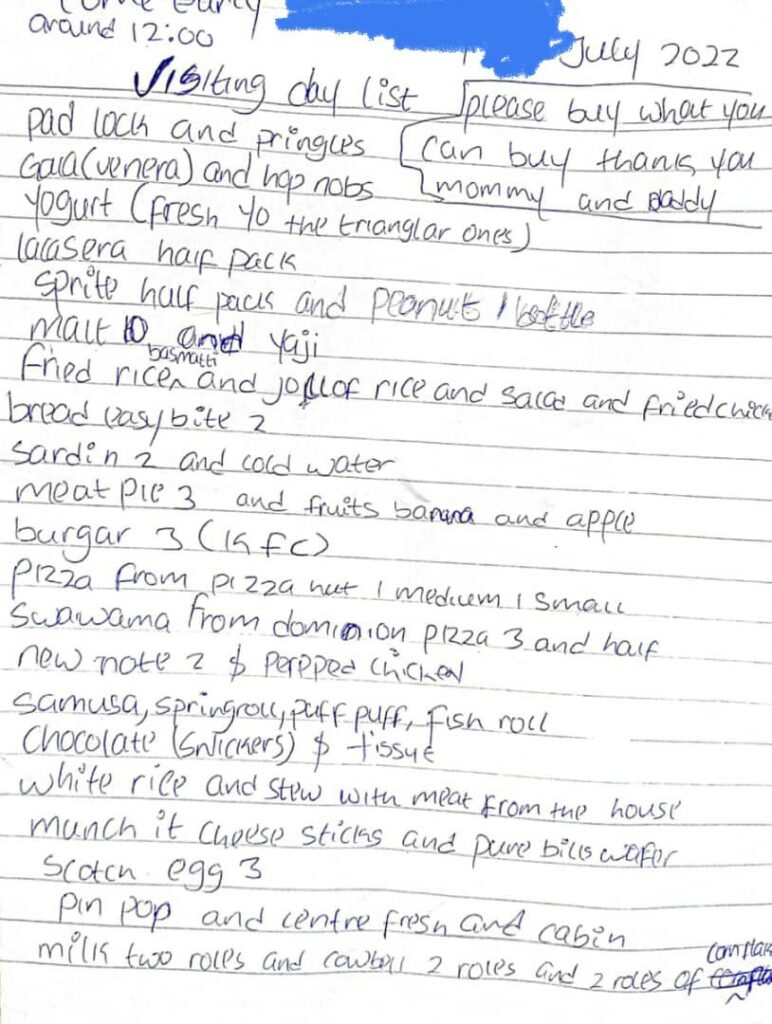 come early
around 12:00
July 2022
Visiting day list
please buy what you
can buy thank you
mommy and daddy
pad lock and pringles
Gala(venera) and hop nobs
yogurt (fresh yo the trianglar ones)
lacasera half pack
sprite half pack and peanut 1 bottle
malt 10 and yaji
fried rice basmatti and jollof rice and salad and fried chick
bread easy bite 2
sardin 2 and cold water
meat pie 3 and fruits banana and apple
burgar 3 (kfc)
pizza from pizza hut 1 medium 1 small
swawama from dominion pizza 3 and half
new note 2 $ perpped chicken
samusa, springroll, puff puff, fish roll
chocolate (snickers) $ tissue
white rice and stew with meat from the house
munch it cheese sticks and pure bliss wafer
scotch egg 3
pin pop and centre fresh and cabin
milk two roles and cowbell 2 roles and 2 roles of cornflak